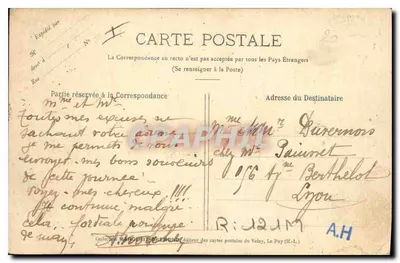 Expédié par
N°
I
20
CARTE POSTALE
La Correspondance au recto n'est pas acceptée par tous les Pays Étrangers
(Se renseigner à la Poste)
Partie réservée à la Correspondance
Adresse du Destinataire
Mme et Mr
Toutes mes excuses ne
sachant votre
je me permets de vous
envoyer mes bons souvenirs
de cette journée.
mes cheveux !!!
continue, malgré
cela, Cordiale poignée
de mains
Mme Mr Duvernois
chez Mr
156 Av Berthelot
Lyon
CPArama
R: 121M
A.H
éditeur des cartes postales du Velay, Le Puy (H.-L.)